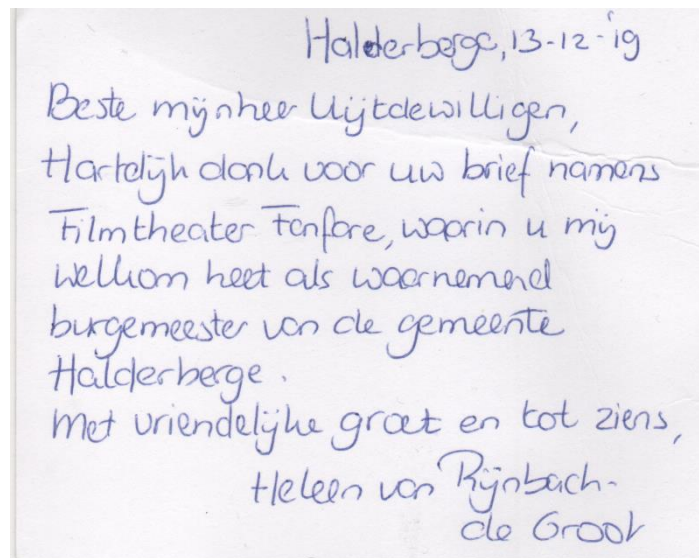 Halderberge, 13-12-'19
Beste mijnheer Uijtdewilligen,
Hartelijk dank voor uw brief namens
Filmtheater Fanfare, waarin u mij
welkom heet als waarnemend
burgemeester van de gemeente
Halderberge.
Met vriendelijke groet en tot ziens,
Heleen van Rijnbach-
de Groot